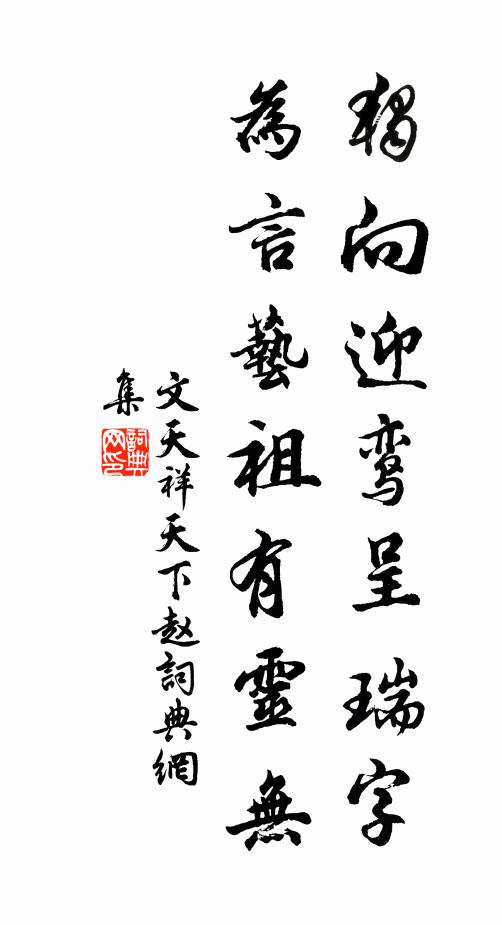 獨向迎鸾呈瑞字
為言藝祖有靈無
文天祥天下赵詞典網
集
詞典网印